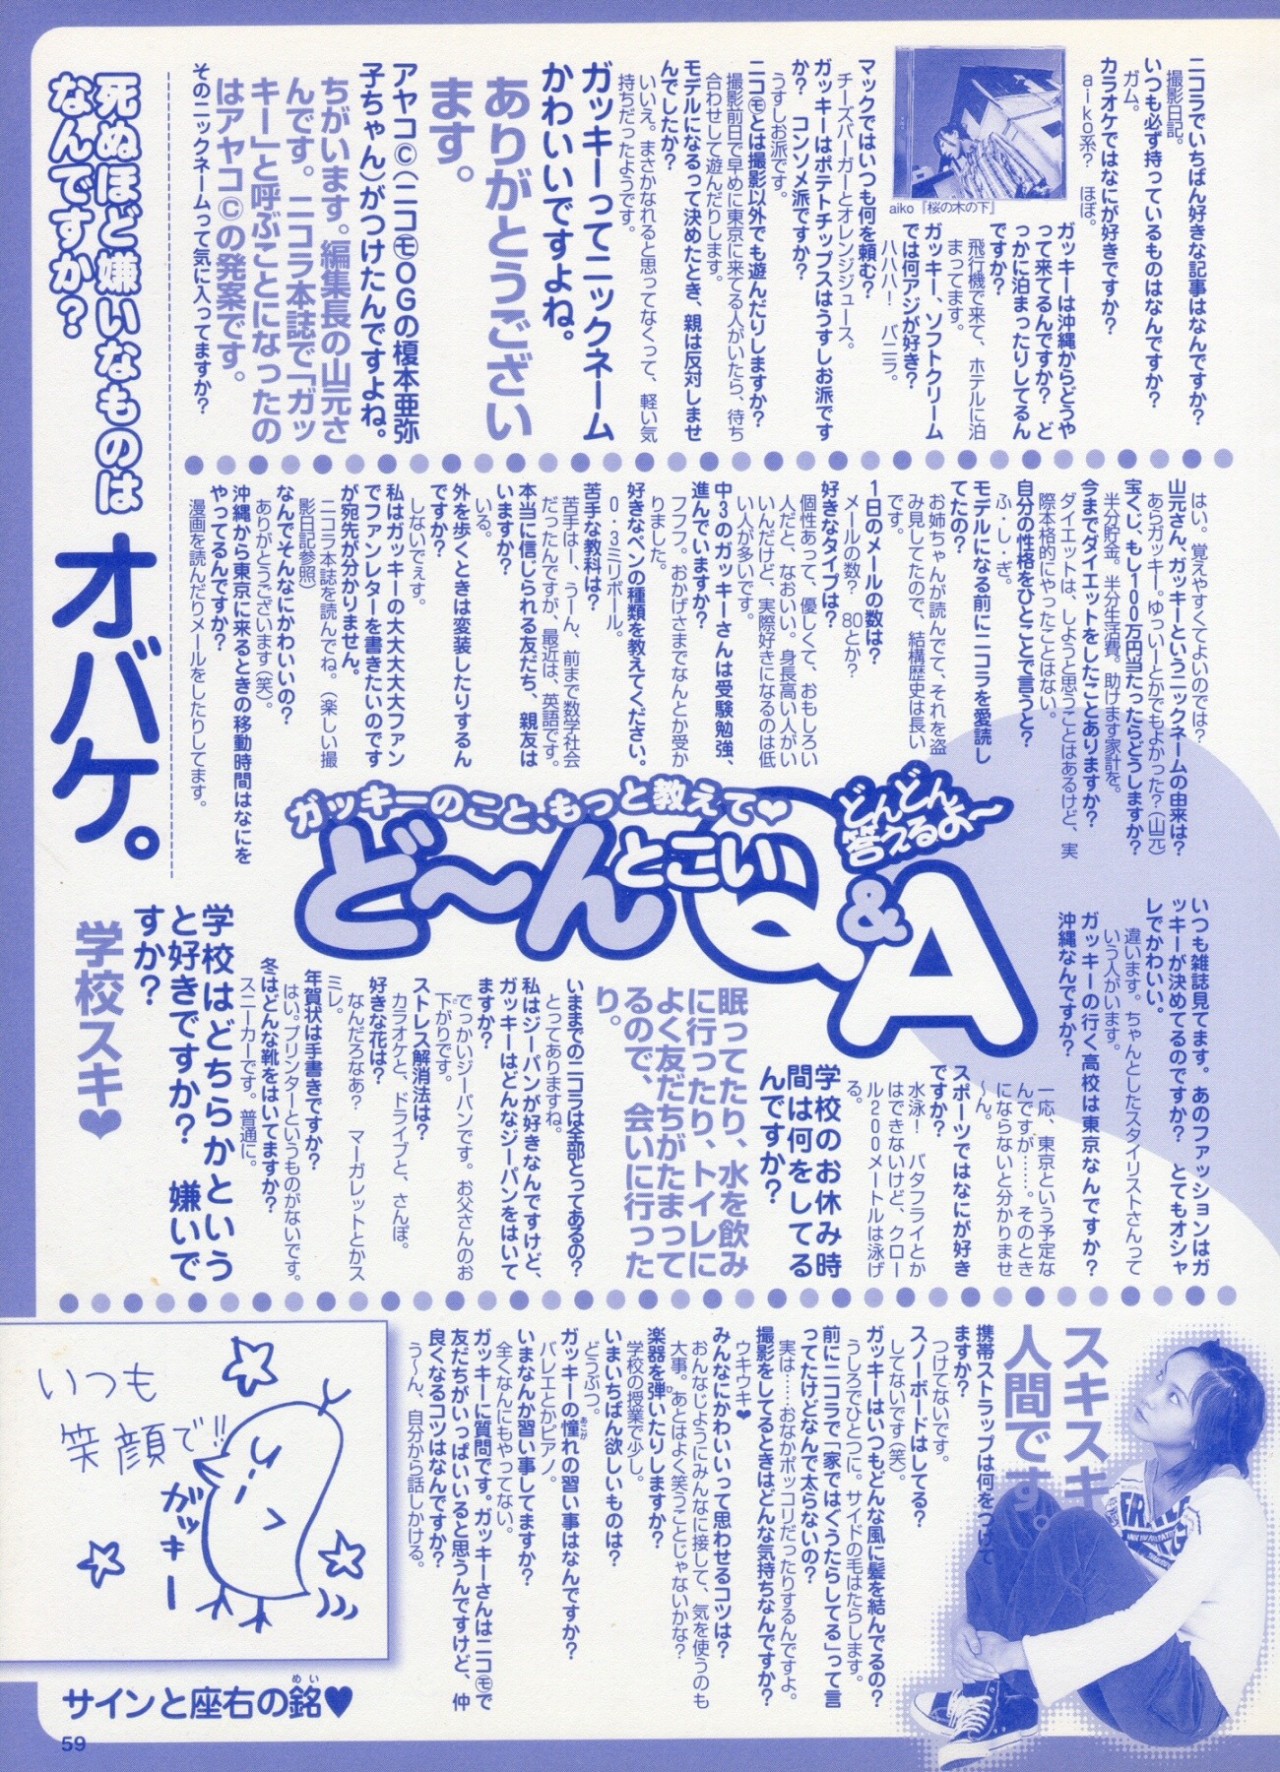 ニコラでいちばん好きな記事はなんですか?
撮影日記。
いつも必ず持っているものはなんですか?
ガム。
カラオケではなにが好きですか?
aiko系? ほぼ。
aiko『桜の木の下』
ガッキーは沖縄からどうや
って来てるんですか? ど
っかに泊まったりしてるん
ですか?
飛行機で来て、ホテルに泊
まってます。
ガッキー、ソフトクリーム
では何アジが好き?
ハハハ! バニラ。
マックではいつも何を頼む?
チーズバーガーとオレンジジュース。
ガッキーはポテトチップスはうすしお派です
か? コンソメ派ですか?
うすしお派です。
ニコ㋲とは撮影以外でも遊んだりしますか?
撮影前日で早めに東京に来てる人がいたら、待ち
合わせして遊んだりします。
モデルになるって決めたとき、親は反対しませ
んでしたか?
いいえ。まさかなれると思ってなくって、軽い気
持ちだったようです。
ガッキーってニックネーム
かわいいですよね。
ありがとうござい
ます。
アヤコ©(ニコ㋲OGの榎本亜弥
子ちゃん)がつけたんですよね。
ちがいます。編集長の山元さ
んです。ニコラ本誌で「ガッ
キー」と呼ぶことになったの
はアヤコ©の発案です。
そのニックネームって気に入ってますか?
はい。覚えやすくてよいのでは?
山元さん、ガッキーというニックネームの由来は?
あらガッキー。ゆっいーとかでもよかった?(山元)
宝くし、もし100万円当たったらどうしますか?
半分貯金。半分生活費。助けます家計を。
今までダイエットをしたことありますか?
ダイエットは、しようと思うことはあるけど、実
際本格的にやったことはない。
自分の性格をひとことで言うと?
ふ・し・ぎ。
モデルになる前にニコラを愛読し
てたの?
お姉ちゃんが読んでて、それを盗
み見してたので、結構歴史は長い
です。
1日のメールの数は?
メールの数? 80とか?
好きなタイプは?
個性あって、優しくて、おもしろい
人だと、なおいい。身長高い人がい
いんだけど、実際好きになるのは低
い人が多いです。
中3のガッキーさんは受験勉強、
進んでいますか?
フフフ。おかげさまでなんとか受か
りました。
好きなペンの種類を教えてください。
0・3ミリボール。
苦手な教科は?
苦手はー、うーん、前まで数学社会
だったんですが、最近は、英語です。
本当に信じられる友だち、親友は
いますか?
いる。
外を歩くときは変装したりするん
ですか?
しないでぇす。
私はガッキーの大大大大大ファン
でファンレターを書きたいのです
が宛先が分かりません。
ニコラ本誌を読んでね。(楽しい撮
影日記参照)
なんでそんなにかわいいの?
ありがとうございます(笑)。
沖縄から東京に来るときの移動時間はなにを
やってるんですか?
漫画を読んだりメールをしたりしてます。
死ぬほど嫌いなものは
なんですか?
オバケ。
ガッキーのこと、もっと教えて♥
ど〜んとこい
Q&A
どんどん
答えるよ〜
いつも雑誌見てます。あのファッションはガ
ッキーが決めてるのですか? とてもオシャ
レでかわいい。
違います。ちゃんとしたスタイリストさんって
いう人がいます。
ガッキーの行く高校は東京なんですか?
沖縄なんですか?
一応、東京という予定な
んですが……。そのとき
にならないと分かりませ
〜ん。
スポーツではなにが好き
ですか?
水泳! バタフライとか
はできないけど、クロー
ル200メートルは泳げ
る。
学校のお休み時
間は何をしてる
んですか?
眠ってたり、水を飲み
に行ったり、トイレに
よく友だちがたまって
るので、会いに行った
り。
いままでのニコラは全部とってあるの?
とってありますね。
私はジーパンが好きなんですけど、
ガッキーはどんなジーパンをはいて
ますか?
でっかいジーパンです。お父さんのお
下がりです。
ストレス解消法は?
カラオケと、ドライブと、さんぽ。
好きな花は?
なんだろなあ? マーガレットとかス
ミレ。
年賀状は手書きですか?
はい。プリンターというものがないです。
冬はどんな靴をはいてますか?
スニーカーです。普通に。
学校はどちらかという
と好きですか? 嫌いで
すか?
学校スキ♥
スキスキ
人間です。
携帯ストラップは何をつけて
ますか?
つけてないです。
スノーボードはしてる?
してないです(笑)。
ガッキーはいつもどんな風に髪を結んでるの?
うしろでひとつに。サイドの毛はたらします。
前にニコラで「家ではぐうたらしてる」って言
ってたけどなんで太らないの?
実は……おなかポッコリだったりするんですよ。
撮影をしてるときはどんな気持ちなんですか?
ウキウキ♥
みんなにかわいいって思わせるコツは?
おんなじようにみんなに接して、気を使うのも
大事。あとはよく笑うことじゃないかな?
楽器を弾いたりしますか?
学校の授業で少し。
いまいちばん欲しいものは?
どうぶつ。
ガッキーの憧れの習い事はなんですか?
バレエとかピアノ。
いまなんか習い事してますか?
全くなんにもやってない。
ガッキーに質問です。ガッキーさんはニコ㋲で
友だちがいっぱいいると思うんですけど、仲
良くなるコツはなんですか?
う〜ん、自分から話しかける。
いつも
笑顔で!!
ガッキー
サインと座右の銘♥
59